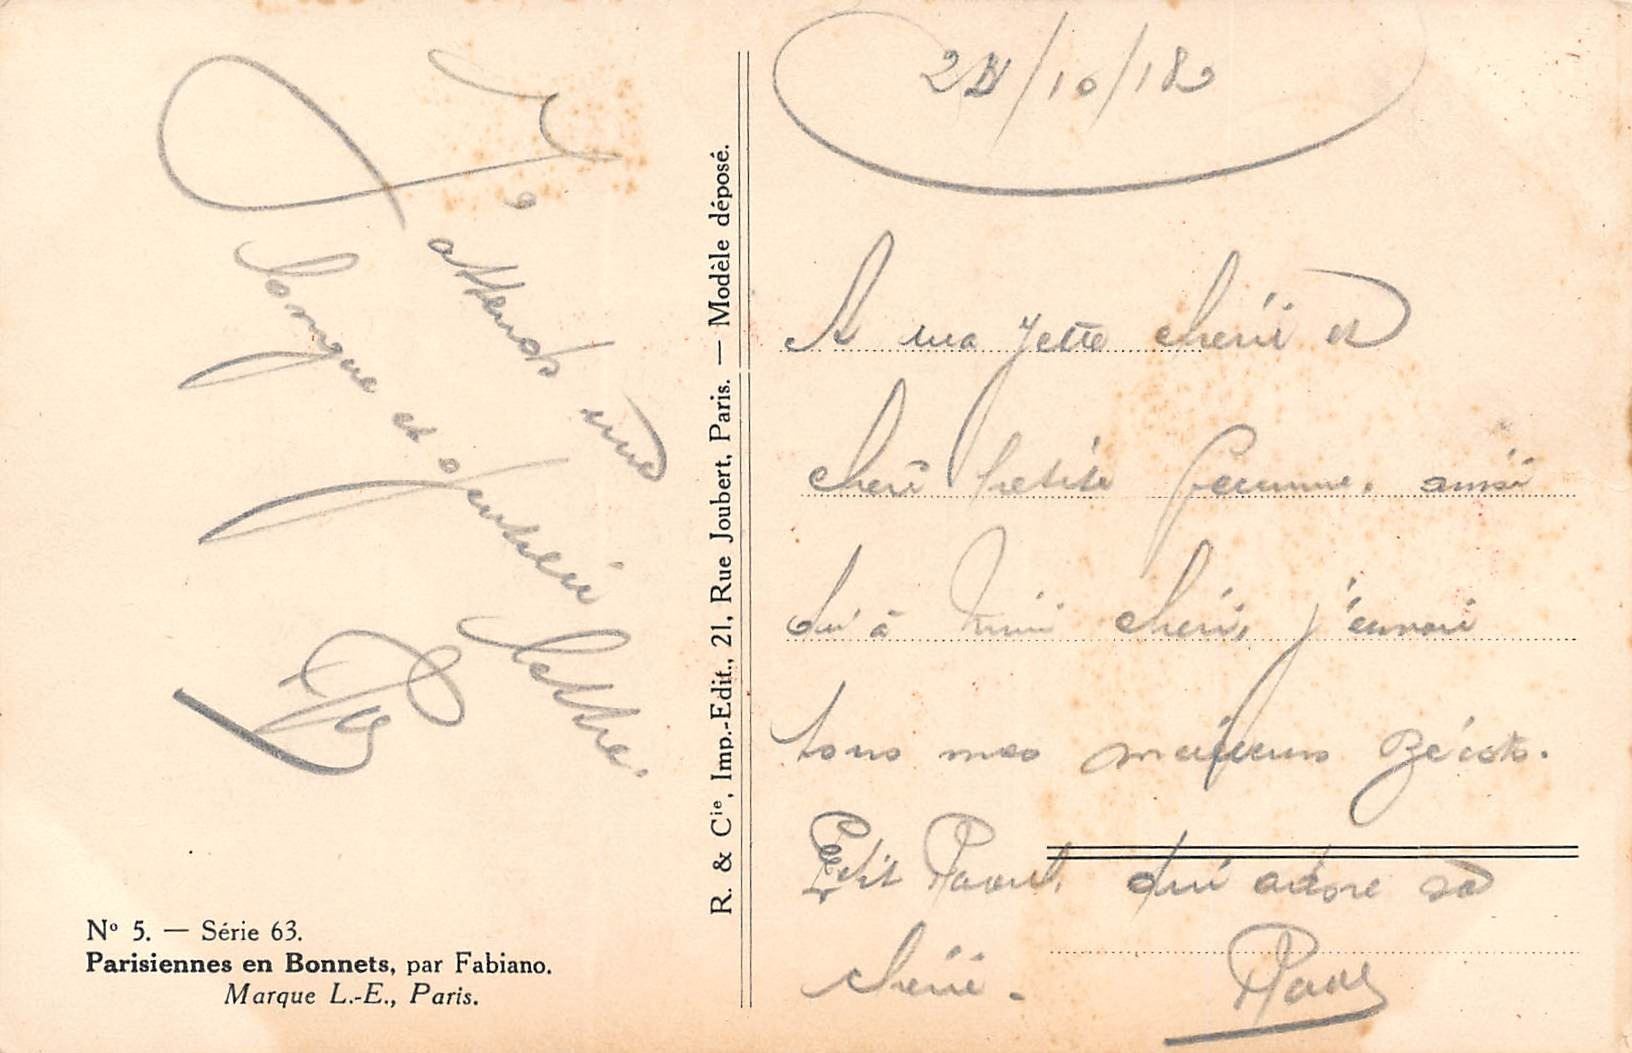 Je
attends une
longue et
lettre.
R
Nº 5. — Série 63.
Parisiennes en Bonnets, par Fabiano.
Marque L.-E., Paris.
R. & Cie, Imp.-Edit., 21, Rue Joubert, Paris. — Modèle déposé.
/10/18
A ma Yette chérii et
cheri petite femme. ainsi
qu'à Mimi chérii, j'envoi
tous mes meilleurs Bécots.
Petit Raoul qui adore sa
chérii.
Raoul